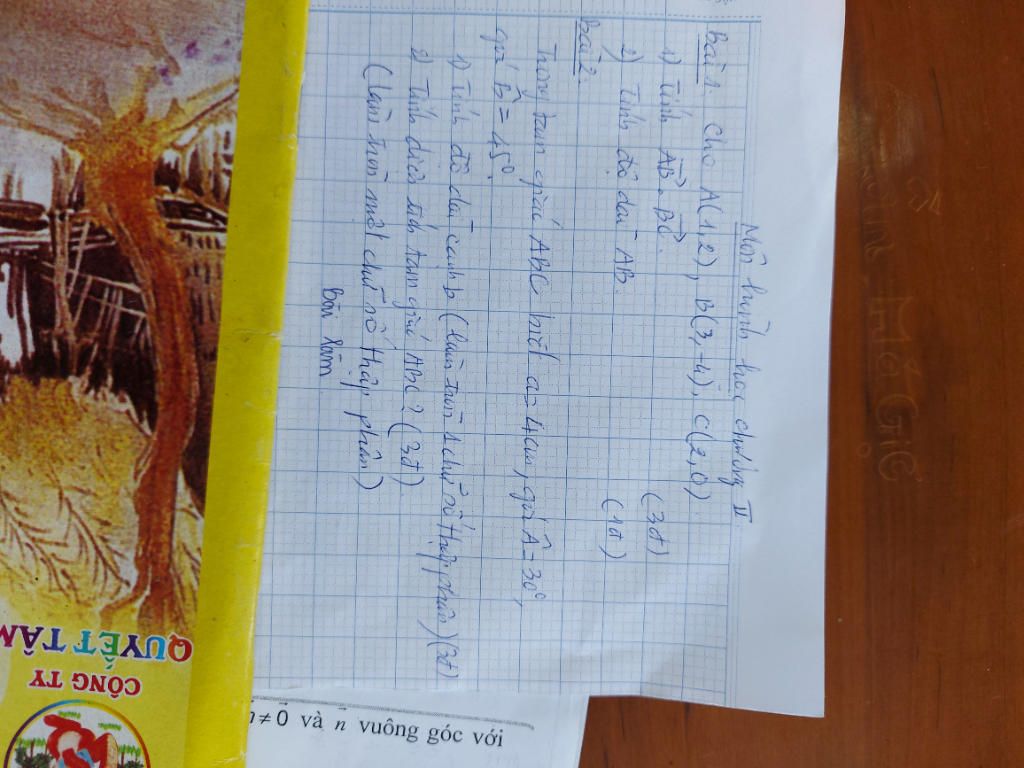 Môn hình học chương II.
Bài 1. Cho A(1,2), B(3,-4), C(2,0).
1) Tính AB⃗ . BC⃗. (3đ)
2) Tính độ dài AB. (1đ)
Bài 2.
Trong tam giác ABC biết a=4cm, góc Â=30°,
góc B̂ = 45°.
1) Tính độ dài cạnh b (làm tròn 1 chữ số thập phân) (3đ)
2) Tính diện tích tam giác ABC? (3đ).
(làm tròn một chữ số thập phân)
Bài làm
n⃗ ≠ 0⃗ và n⃗ vuông góc với
CÔNG TY
QUYẾT TÂM